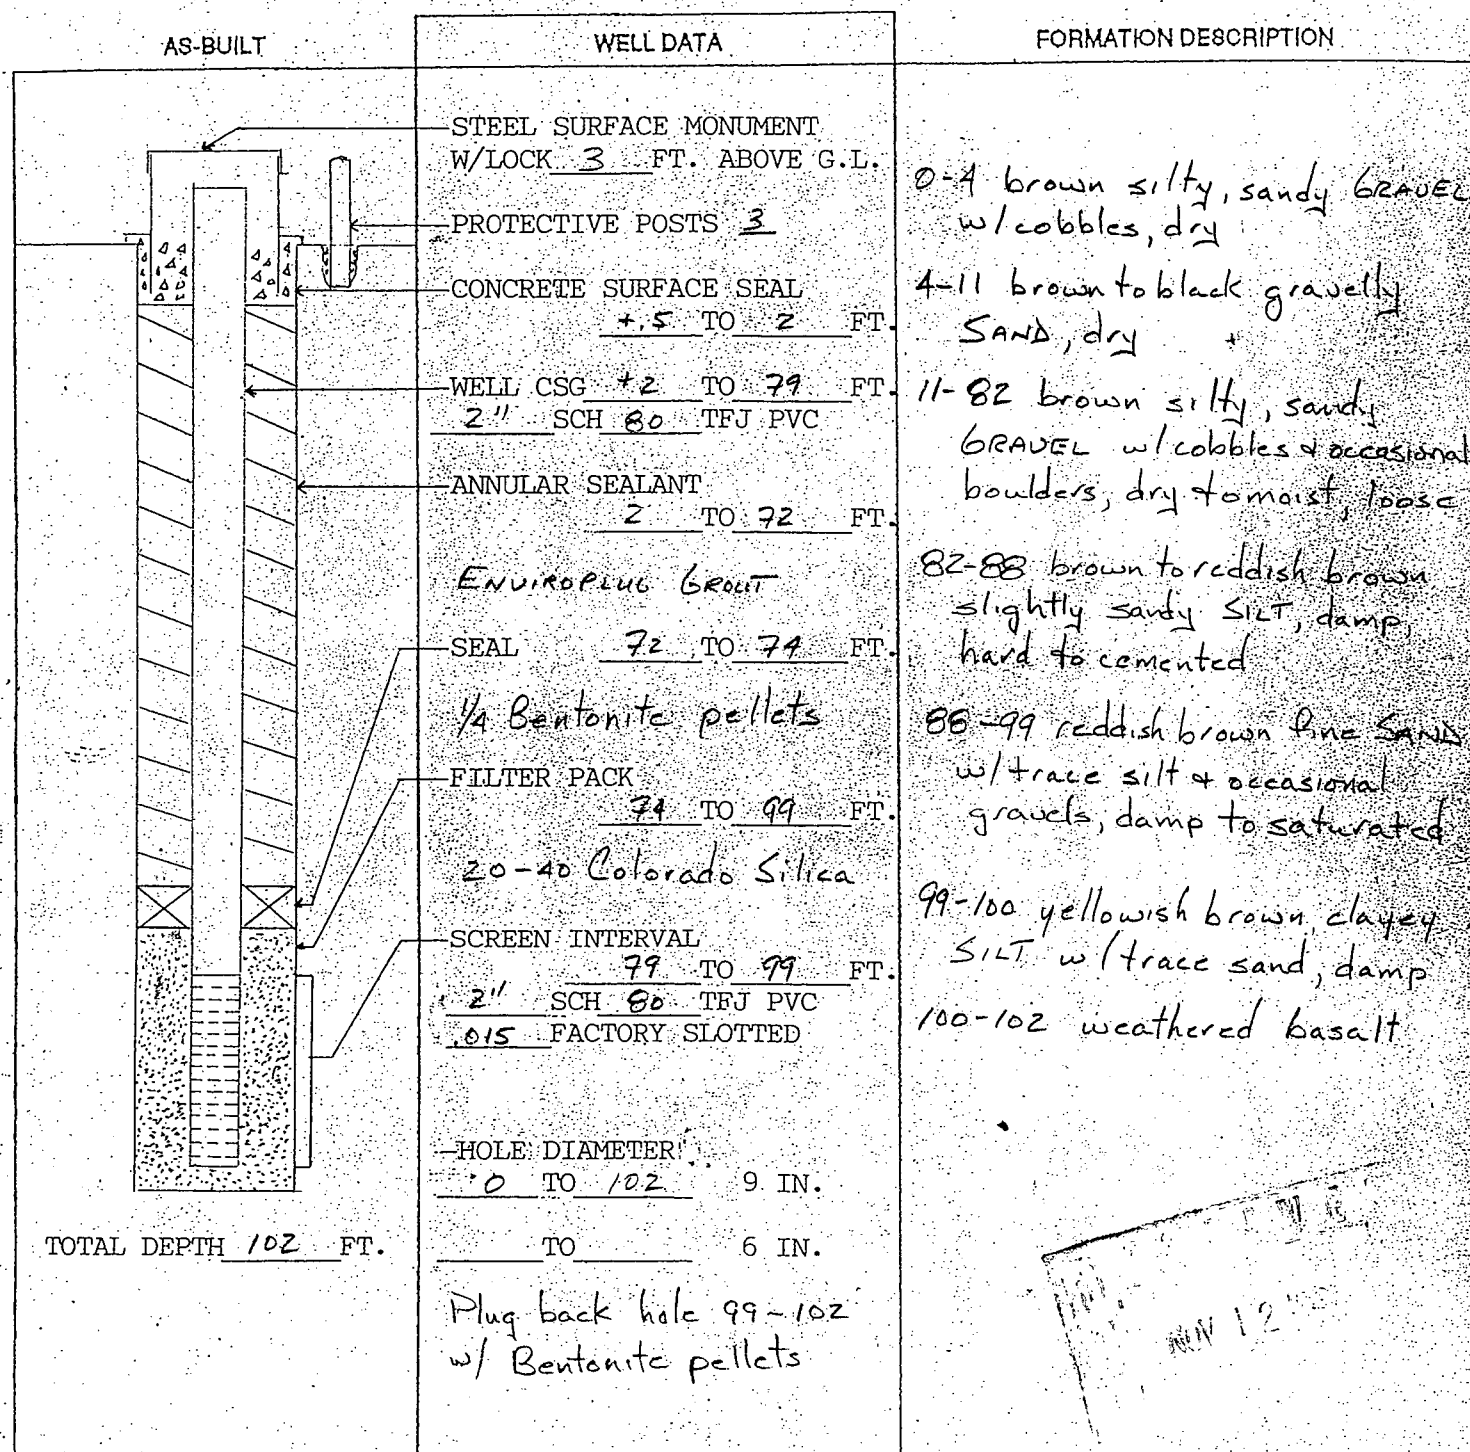 AS-BUILT
WELL DATA
FORMATION DESCRIPTION
STEEL SURFACE MONUMENT
W/LOCK 3 FT. ABOVE G.L.
PROTECTIVE POSTS 3
CONCRETE SURFACE SEAL
+.5 TO 2 FT.
WELL CSG +2 TO 79 FT.
2" SCH 80 TFJ PVC
ANNULAR SEALANT
2 TO 72 FT.
ENVIROPLUG GROUT
SEAL 72 TO 74 FT.
1/4 Bentonite pellets
FILTER PACK
74 TO 99 FT.
20-40 Colorado Silica
SCREEN INTERVAL
79 TO 99 FT.
2" SCH 80 TFJ PVC
.015 FACTORY SLOTTED
HOLE DIAMETER
0 TO 102 9 IN.
TO 6 IN.
Plug back hole 99-102
w/ Bentonite pellets
TOTAL DEPTH 102 FT.
0-4 brown silty, sandy GRAVEL
w/cobbles, dry
4-11 brown to black gravelly
SAND, dry
11-82 brown silty, sandy
GRAVEL w/cobbles & occasional
boulders, dry to moist, loose
82-88 brown to reddish brown
slightly sandy SILT, damp,
hard to cemented
88-99 reddish brown fine SAND
w/trace silt & occasional
gravels, damp to saturated
99-100 yellowish brown clayey
SILT w/trace sand, damp
100-102 weathered basalt
NOV 12